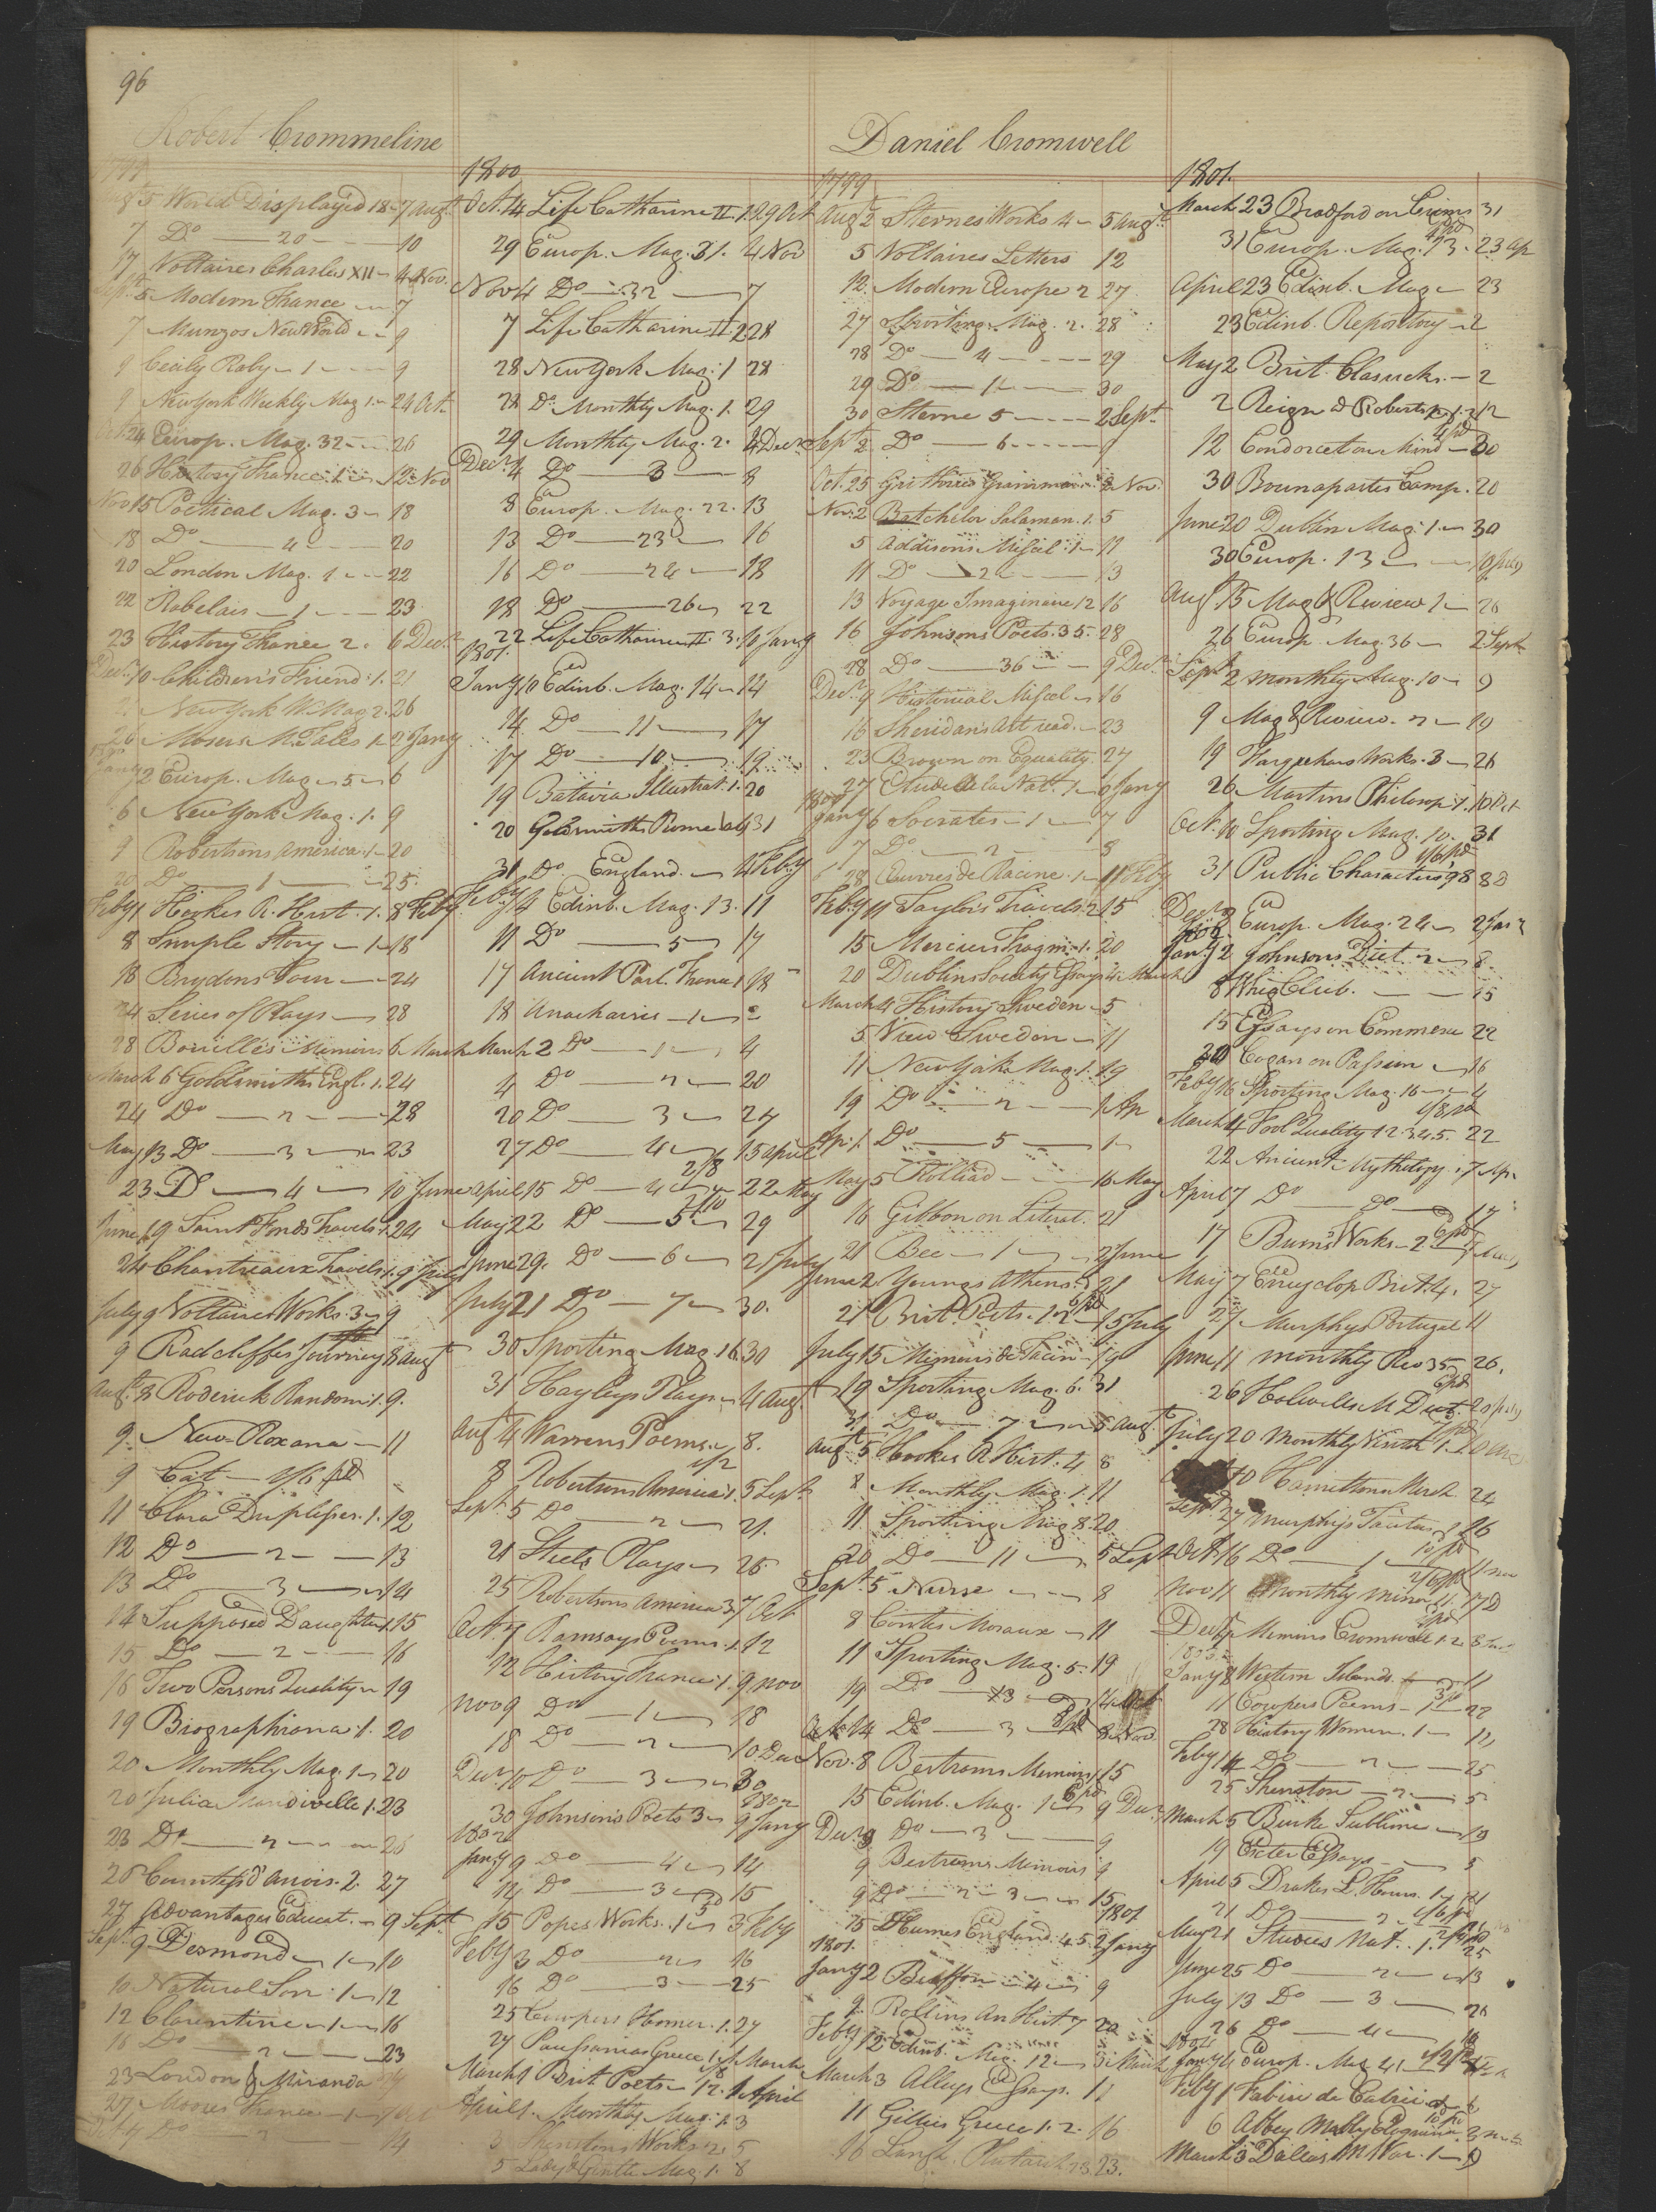 96
Robert Crommeline
1799
Augt 5 World Displayed 18 - 7 Augt
7 Do — 20 — 10
17 Voltaires Charles XII - 4 Nov.
Sept. 5 Modern France — 7
7 Munzos New World — 9
9 Cecily Raby - 1 — 9
9 New York Weekly Mag 1 - 24 Oct
Oct 24 Europ. Mag. 32 — 26
26 History France 1 — 12 Nov
Nov 15 Poetical Mag. 3 - 18
18 Do — 4 — 20
20 London Mag. 1 — 22
22 Rabelais — 1 — 23
23 History France 2. 6 Decr
Decr 10 Children's Friend. 1. 21
21 New York W. Mag 2. 26
26 Mosers M. Tales 1 - 2 Jany
Jany 2 Europ. Mag - 5 - 6
6 New York Mag. 1. 9
9 Robertsons America. 1 - 20
20 Do — 1 — 25
Feby 1 Hookes R. Hist. 1. 8 Feby
8 Simple Story — 1 - 18
18 Brydons Tour — 24
24 Series of Plays — 28
28 Bouillés Memoirs 6 March
March 6 Goldsmiths Engl. 1. 24
24 Do — 2 — 28
May 13 Do — 3 — 23
23 Do — 4 — 10 June
June 19 Saint Fonds Travels 1. 24
24 Chantreaux Travels 1. 9 July
July 9 Voltaires Works. 3 - 9
9 Radcliffes Journey 8 Augt
Augt 8 Roderick Random 1. 9.
9 New Roxana — 11
9 Cat — 1/6 pd
11 Clara Duplesses. 1. 12
12 Do — 2 — 13
13 Do — 3 — 14
14 Supposed Daughter 1. 15
15 Do — 2 — 16
16 Two Persons Quality 19
19 Biographiana. 1. 20
20 Monthly Mag. 1 - 20
20 Julia Mandiville 1. 23
23 Do — 2 — 26
26 Countess d'Anois. 2. 27
27 Advantages Educat. - 9 Sept
Sept. 9 Desmond - 1 - 10
10 Natural Son. 1 - 12
12 Clarentine - 1 - 16
16 Do — 2 — 23
23 London & Miranda
27 Moores France — 1
Do — 2 — 14
1800
Oct. 14 Life Catharine II. 1. 29 Oct
29 Europ. Mag. 31. 4 Nov
Nov 4 Do — 32 — 7
7 Life Catharine II 2 28
28 New York Mag. 1 28
28 Do Monthly Mag. 1. 29
29 Monthly Mag. 2. 4 Decr
Decr 4 Do — 3 — 8
8 Europ. Mag. 22. 13
13 Do — 23 — 16
16 Do — 24 — 18
18 Do — 26 - 22
22 Life Catharine II. 3. 10 Jany
1801.
Jany 10 Edinb. Mag. 14 - 14
14 Do — 11 — 17
17 Do — 10 — 19
19 Batavia Illustrat. 1. 20
20 Goldsmiths Rome 31
31 Do England. — 4 Feby
Feby 4 Edinb. Mag. 13. 11
11 Do — 5 - 17
17 Ancient Parl. France 1 18
18 Anacharsis — 1 —
March 2 Do — 1 — 4
4 Do — 2 — 20
20 Do — 3 — 27
27 Do — 4 — 15 April
2/8
April 15 Do — 4 — 22 May
May 22 Do — 5 — 29
June 29. Do — 6 — 21 July
July 21 Do — 7 — 30.
30 Sporting Mag. 16 30
31 Hayleys Plays - 4 Augt.
Augt 4 Warrens Poems. 8.
8 Robertsons America 1. 5 Sept
Sept. 5 Do — 2 — 21.
21 Steels Plays - 25
25 Robertsons America 3 7 Oct
Oct. 7 Ramsays Poems. 1. 12
12 History France 1. 9 Nov
Nov 9 Do — 1 — 18
18 Do — 2 — 10 Dec
Decr 10 Do — 3 — 30
1802
30 Johnsons Poets 3 - 9 Jany
1802
Jany 9 Do — 4 — 14
14 Do — 3 — 15
15 Popes Works. 1 - 3 Feby
Feby 3 Do — 2 — 16
16 Do — 3 — 25
25 Cowpers Homer. 1. 27
27 Pausanias Greece 1. 1 March
March 1 Brit Poets - 12. 1 April
April 1. Monthly Mag. 1. 3
3 Shenstons Works. 2. 5
5 Lady & Gentle Mag. 1. 8
Daniel Cromwell
1799
Augt 2 Sternes Works 4 - 5 Augt
5 Voltaires Letters 12
12. Modern Europe 2 27
27 Sporting Mag. 2. 28
28 Do — 4 — 29
29 Do — 1 — 30
30 Sterne 5 — 2 Sept
Sept 2. Do — 6 —
Oct. 25 Guthries Grammar 2 Nov.
Nov. 2 Batchelor Salaman. 1. 5
5 Addisons Miscel. 1 - 11
11 Do — 2 — 13
13 Voyage Imaginaire 12 16
16 Johnsons Poets. 35. 28
28 Do — 36 — 9 Decr
Decr 9 Historical Miscel - 16
16 Sheridans Art read. - 23
23 Brown on Equality. 27
27 Etude de la Nat. 1 - 6 Jany
1800
Jany 6 Socrates - 1 — 7
7 Do — 2 — 8
28 Œuvres de Racine. 1 - 11 Feby
Feby 11 Taylors Travels. 2 15
15 Merciers Fragm. 1. 20
20 Dublin Society Essays 4 March
March 4 History Sweden - 5
5 View Sweden - 11
11 New York Mag. 1. 19
19 Do — 2 — 1 Ap
Apr. 1. Do — 5 — 1
May 5 Rolliad — 16 May
16 Gibbon on Literat. 21
21 Bee — 1 — 2 June
June 2 Youngs Athens. 21
21 Brit. Poets. 1. 2 - 15 July
July 15 Memoirs de Tacin - 19
19 Sporting Mag. 6. 31
31 Do — 7 — 5 Augt
Augt 5 Hookes R Hist. 4 8
8 Monthly Mag. 1. 11
11. Sporting Mag 8. 20
20 Do — 11 — 5 Sept
Sept. 5 Nurse — 8
8 Contes Moraux - 11
11 Sporting Mag. 5. 19
19 Do — 13 — 14 Oct
Oct. 14 Do — 3 — 8 Nov.
Nov. 8 Bertrams Memoirs 15
15 Edinb. Mag. 1 - 9 Decr
Decr 9 Do — 3 — 9
9 Bertrams Memoirs 9
9 Do — 2 - 3 — 15
1801
15 Humes England. 4 5. 2 Jany
1801.
Jany 2 Buffon — 4 — 9
9. Rollins An Hist 7
Feby 12 Edinb. Mag. 12 - 3 March
March 3 Alleys Essays. 11
11 Gillies Greece 1. 2. 16
16 Langh. Plutarch 23.
1801.
March 23 Bradford on Crimes 31
31 Europ. Mag. 13 - 23 Ap
April 23 Edinb. Mag - 23
23 Edinb. Repository - 2
May 2 Brit Classicks. - 2
2 Reign & Robertsp. 12
12 Condorcet on Mind - 30
30 Bounapartes Camp. 20
June 20 Dublin Mag. 1. - 30
30 Europ. 13 — 10 July
Aug 15 Mag & Review 1 - 26
26 Europ. Mag. 36 - 2 Sept
Sept 2 Monthly Mag. 10 - 9
9 Mag & Review. 2 - 19
19 Farquhars Works. 3 - 26
26 Martins Philosop. 1. 10 Oct
Oct. 10 Sporting Mag. 10. 31
31 Public Characters 98 8 D
Decr Europ. Mag. 24 - 2 Jan
1802
Jany 2 Johnsons Dict. 2 - 8
8 Whig Club. — 15
15 Essays on Commerce 22
Cogan on Passion 16
Feby 16 Sporting Mag. 16 — 4
March 4 Fool Quality 1 2 3 4 5. 22
22 Ancient Mythology. 7 Ap
April 7 Do — Do — 17
17 Burns Works - 2
May 7 Encyclop Brit. 4. 27
27 Murphys Portugal 11
June 11 Monthly Rev 35 26.
26 Holwells M Dict. 20 July
July 20 Monthly 1.
10 Hamiltons March 24
Sept 27 Murphys Tacitus 26
Oct. 16 Do — 1 — 11 Nov
Nov 11 Monthly Mirror 11. 17 D
Decr 17 Memoirs Cromwell 1. 2
1803
Jany 8 Western Islands. — 11
11 Cowpers Poems - 1 - 28
28 History Women. 1 - 14
Feby 14 Do — 2 — 25
25 Shenston — 2 — 5
March 5 Burke Sublime — 19
19 Exeter Essays — 5
April 5 Drakes L. Hours. 1 - 21
21 Do — 2 — 21
May 21 Studies Nat. . 1. 25
June 25 Do — 2 — 13
July 13 Do — 3 — 26
26 Do — 4 — 18
1804
Jany 4 Europ. Mag 41
Feby 1 Fabire de Cabrie
6 Abbey Mably
March 3 Dallas M War. 1 - 9